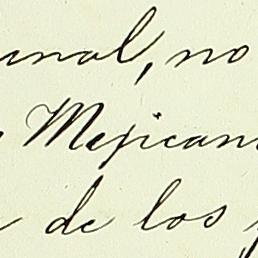 unal, no
Mejican
de los